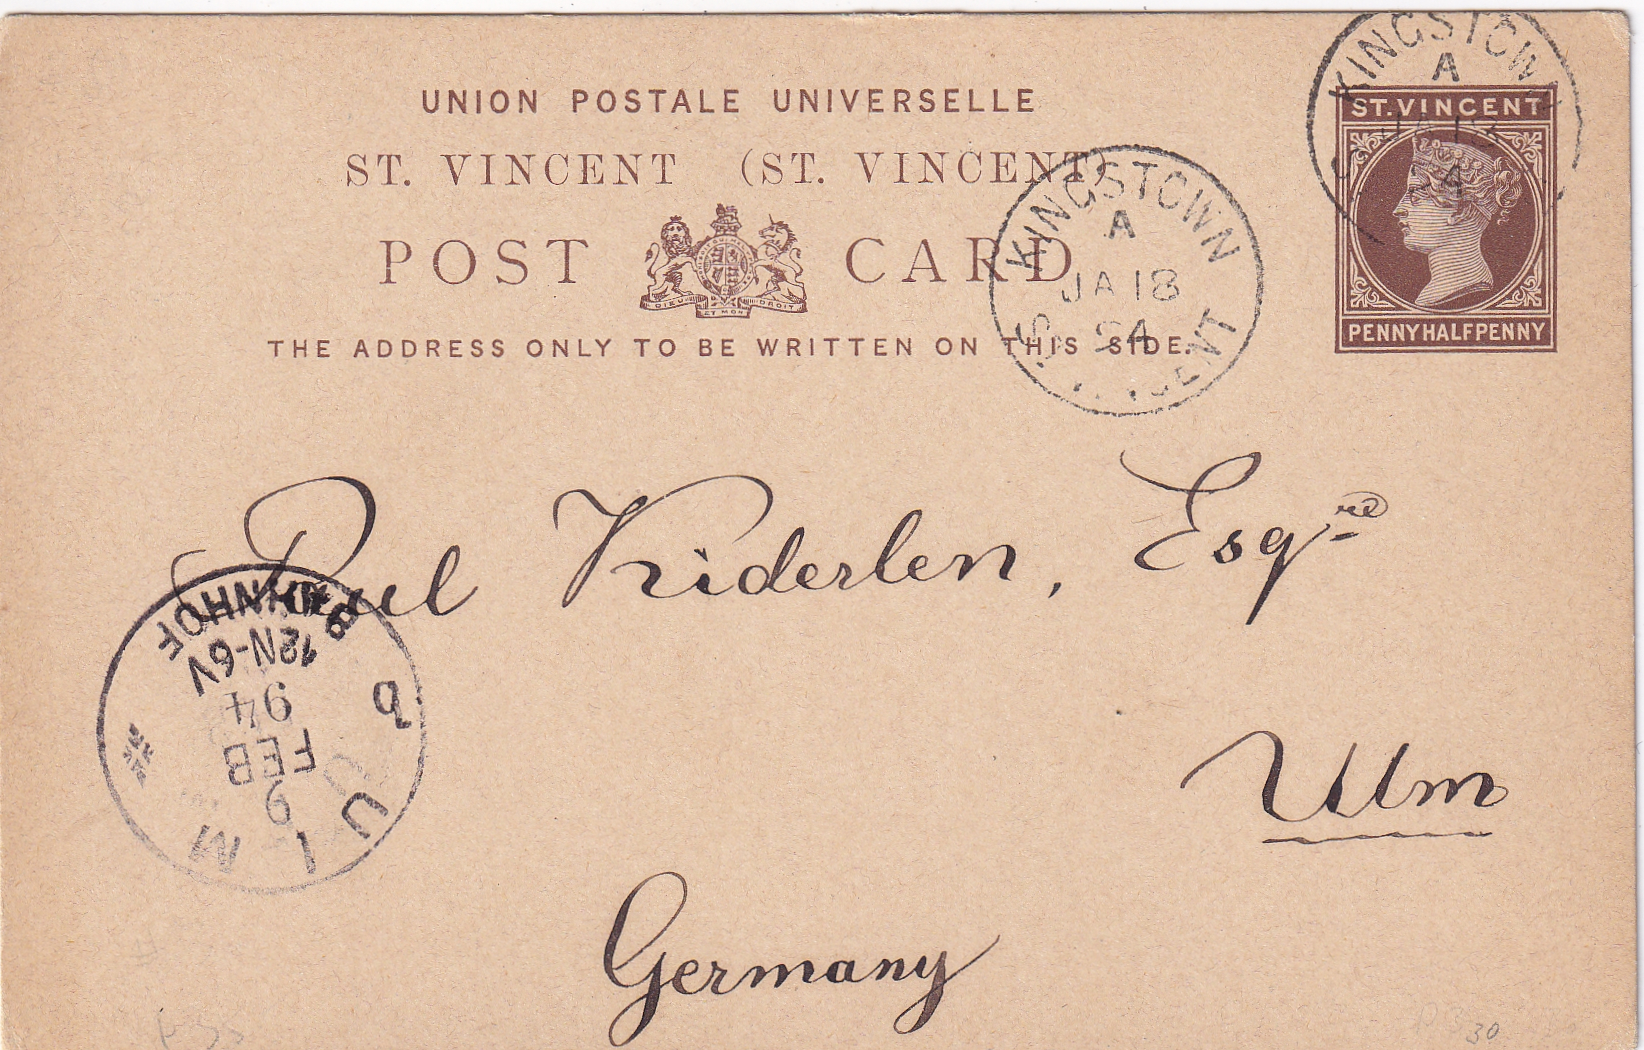 UNION POSTALE UNIVERSELLE
ST. VINCENT (ST. VINCENT)
POST CARD
DIEU ET MON DROIT
THE ADDRESS ONLY TO BE WRITTEN ON THIS SIDE.
KINGSTOWN
A
ST. VINCENT
PENNY HALFPENNY
KINGSTOWN
A
JA 18
94
VINCENT
Paul Kiderlen, Esqre
Ulm
Germany
ULM
9
FEB
94
12N-6V
BAHNHOF
b
30